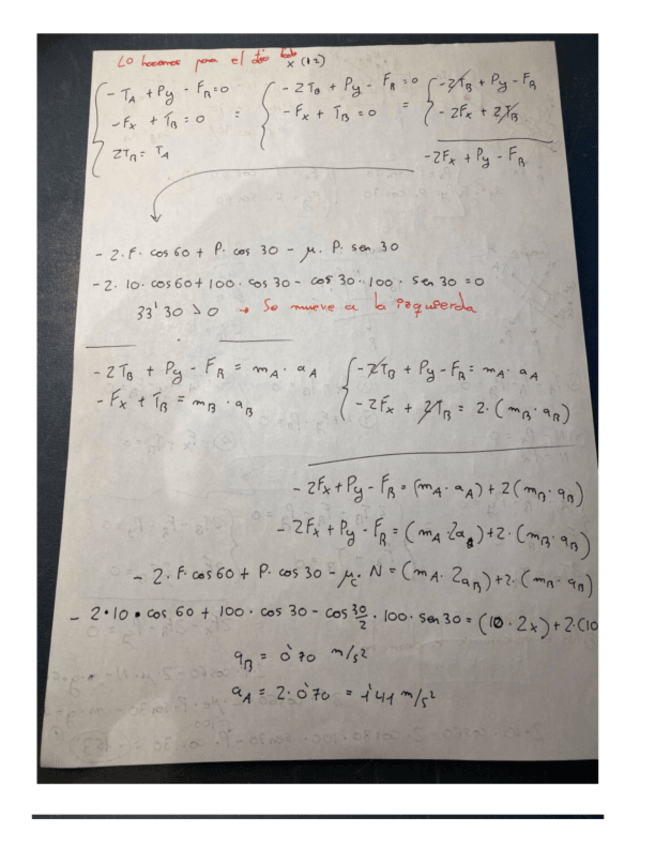 Lo hacemos para el otro lado
x (+2)
- TA + Py - FR = 0
- Fx + TB = 0
2TB = TA
=
- 2TB + Py - FR = 0
- Fx + TB = 0
=
- 2TB + Py - FR
- 2Fx + 2TB
- 2Fx + Py - FR
- 2·F· cos 60 + P· cos 30 - μ· P· sen 30
- 2· 10· cos 60 + 100· cos 30 - cos 30· 100· sen 30 = 0
33'30 > 0 → Se mueve a la izquierda
- 2TB + Py - FR = mA · aA
- Fx + TB = mB · aB
- 2TB + Py - FR = mA · aA
- 2Fx + 2TB = 2· (mB· aB)
- 2Fx + Py - FR = (mA· aA) + 2(mB· aB)
- 2Fx + Py - FR = (mA· 2aB) + 2· (mB· aB)
- 2· F· cos 60 + P· cos 30 - μc· N = (mA· 2aB) + 2· (mB· aB)
- 2·10 · cos 60 + 100 · cos 30 - cos 30/2 · 100· sen 30 = (10 · 2x) + 2·(10
aB = 0'70 m/s²
aA = 2· 0'70 = 1'41 m/s²